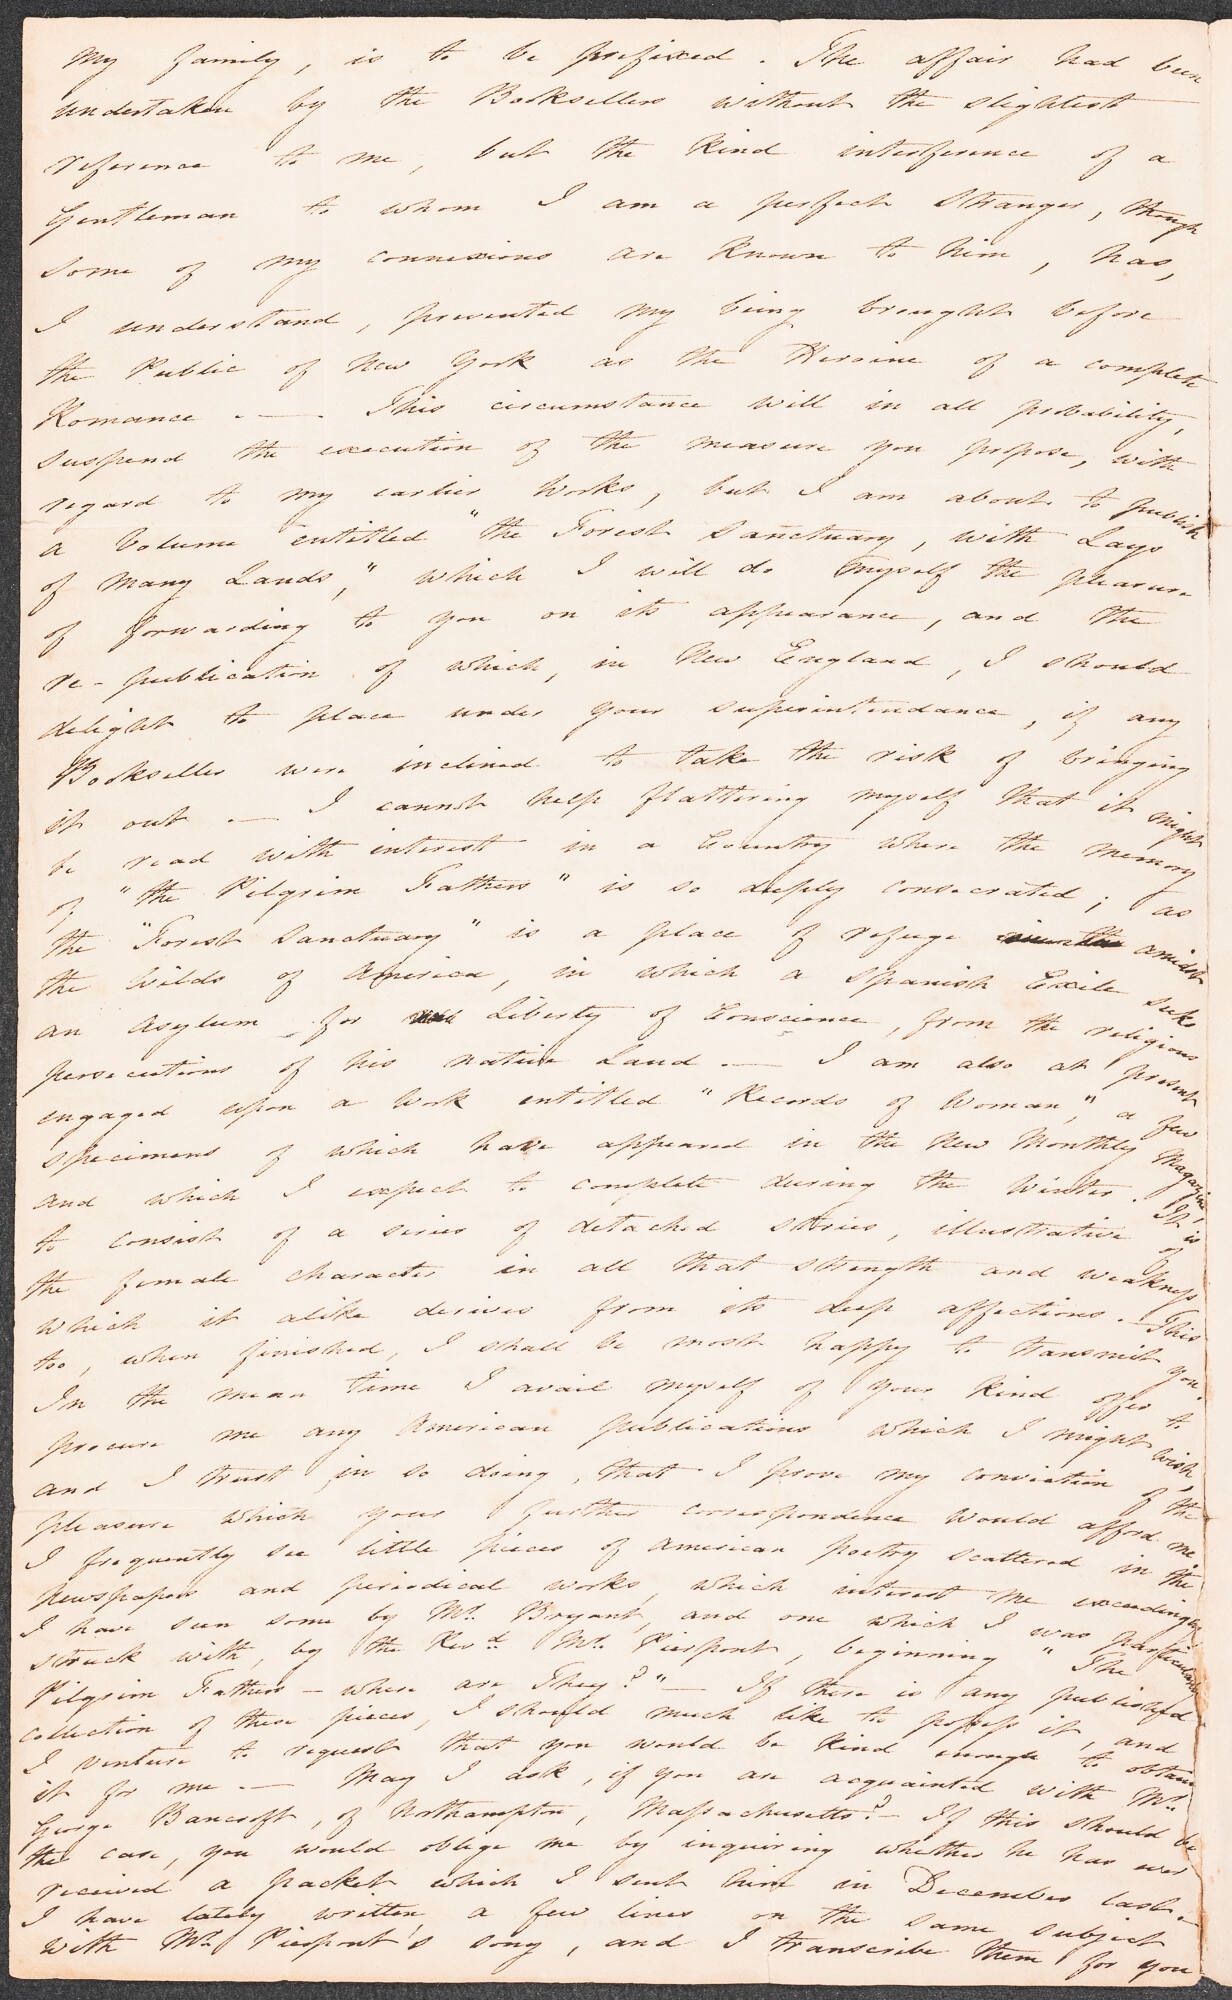 my family, is to be prefixed. The affair had been
undertaken by the Booksellers without the slightest
reference to me, but the kind interference of a
Gentleman to whom I am a perfect Stranger, though
some of my connexions are known to him, has,
I understand, prevented my being brought before
the Public of New York as the Heroine of a complete
Romance. — This circumstance will in all probability,
suspend the execution of the measure you propose, with
regard to my earlier works, but I am about to publish
a Volume entitled "the Forest Sanctuary, with Lays
of many Lands," which I will do myself the pleasure
of forwarding to you on its appearance, and the
re-publication of which, in New England, I should
delight to place under your superintendance, if any
Bookseller were inclined to take the risk of bringing
it out. — I cannot help flattering myself that it might
be read with interest in a Country where the memory
of "the Pilgrim Fathers" is so deeply consecrated; as
the "Forest Sanctuary" is a place of refuge amidst
the wilds of America, in which a Spanish Exile seeks
an asylum for Liberty of Conscience, from the religious
persecutions of his native Land. — I am also at present
engaged upon a Work entitled "Records of Woman," a few
specimens of which have appeared in the New Monthly Magazine,
and which I expect to complete during the Winter. It is
to consist of a series of detached stories, illustrative of
the female character in all that strength and weakness
which it alike derives from its deep affections. — This
too, when finished, I shall be most happy to transmit you.
In the mean time I avail myself of your kind offer to
procure me any American publications which I might wish,
and I trust, in so doing, that I prove my conviction of the
pleasure which your further correspondence would afford me.
I frequently see little pieces of American poetry scattered in the
Newspapers and periodical works, which interest me exceedingly
I have seen some by Mr. Bryant, and one which I was particularly
struck with, by the Revd. Mr. Pierpont, beginning "The
Pilgrim Fathers — where are They?" — If there is any published
collection of these pieces, I should much like to possess it, and
I venture to request that you would be kind enough to obtain
it for me. — May I ask, if you are acquainted with Mr.
George Bancroft, of Northampton, Massachusetts? — If this should be
the case, you would oblige me by inquiring whether he has ever
received a packet which I sent him in December last. —
I have lately written a few lines on the same subject
with Mr. Pierpont's song, and I transcribe them for you